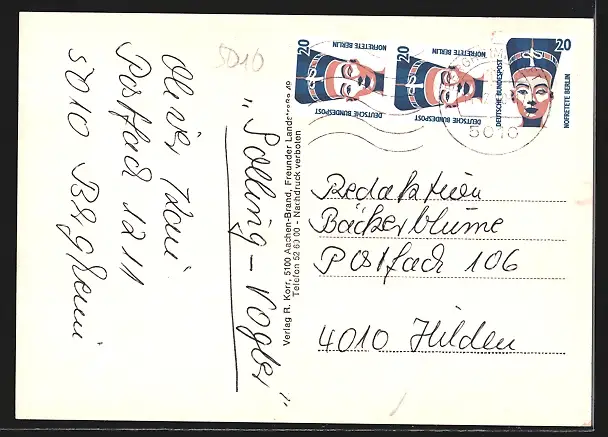 Oliver
Postfach 1211
5010
5010
"Solling-Vogler"
Verlag R. Korr, 5100 Aachen-Brand, Freunder Landstraße 49
Telefon 52 60 00 - Nachdruck verboten
20
NOFRETETE BERLIN
DEUTSCHE BUNDESPOST
20
NOFRETETE BERLIN
DEUTSCHE BUNDESPOST
20
NOFRETETE BERLIN
DEUTSCHE BUNDESPOST
5010
Redaktion
Bäckerblume
Postfach 106
4010 Hilden